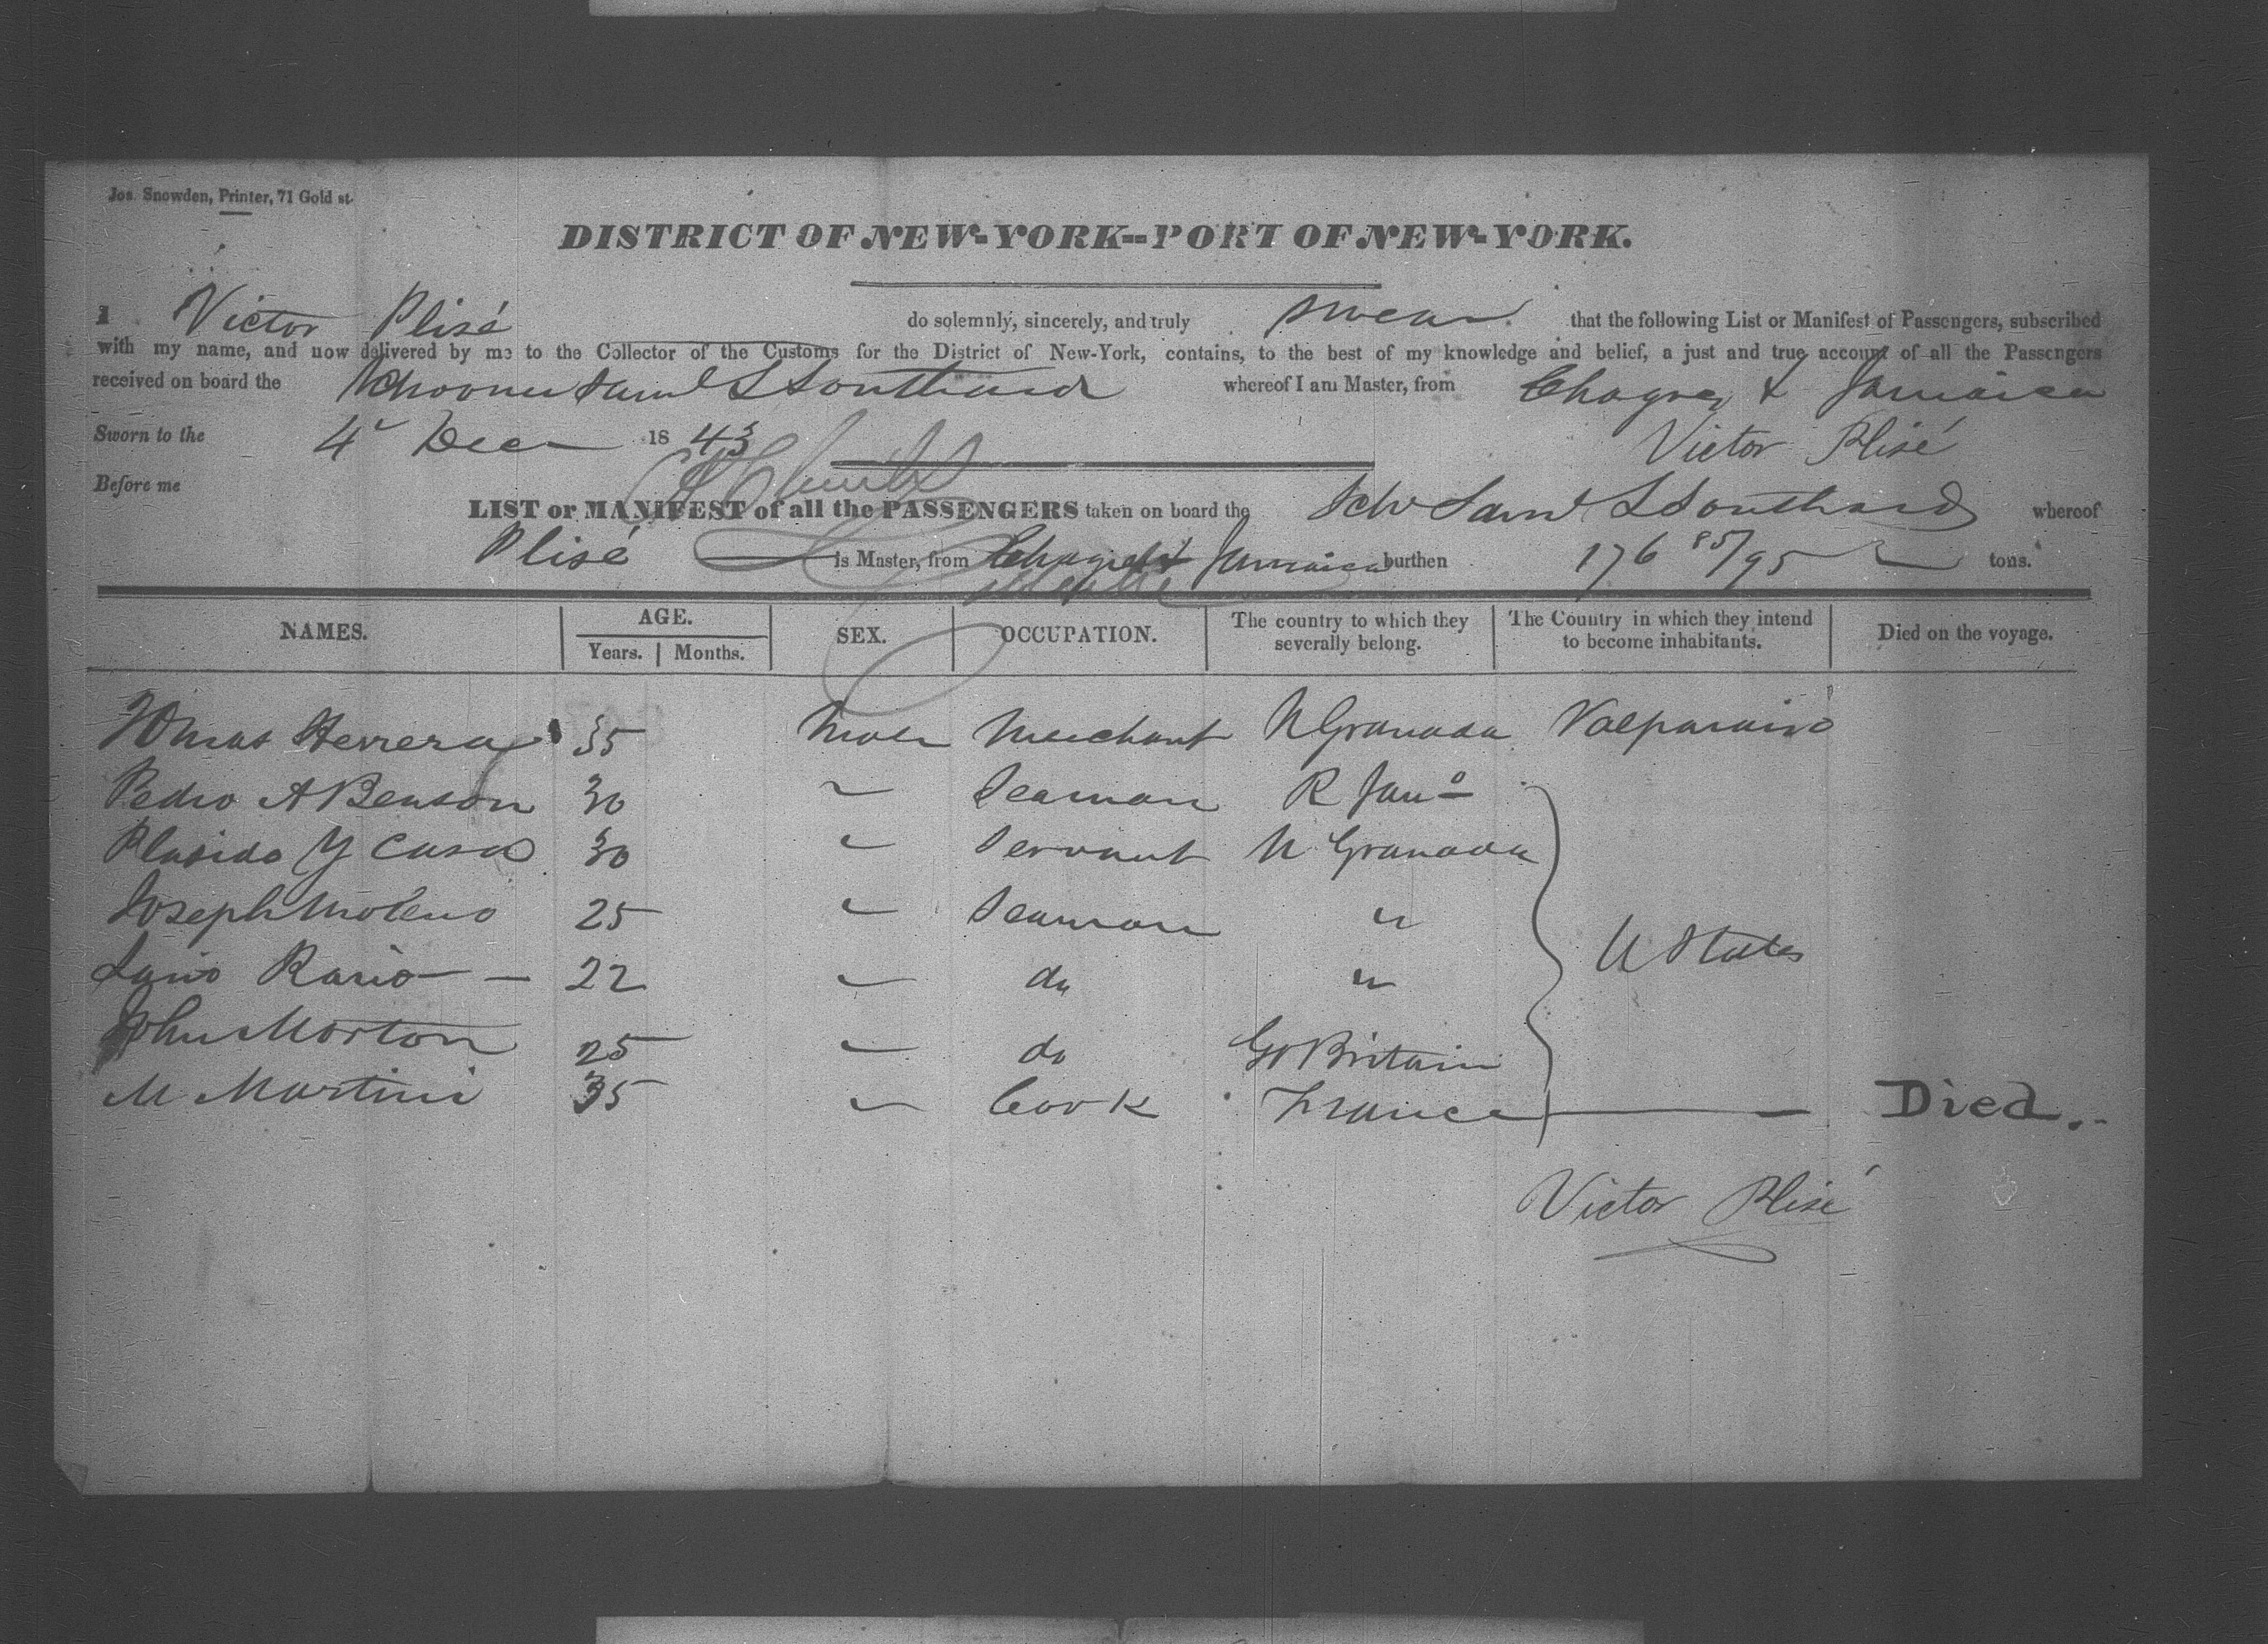 Jos. Snowden, Printer, 71 Gold st.
DISTRICT OF NEW-YORK--PORT OF NEW-YORK.
I Victor Plisé do solemnly, sincerely, and truly swear that the following List or Manifest of Passengers, subscribed
with my name, and now delivered by me to the Collector of the Customs for the District of New-York, contains, to the best of my knowledge and belief, a just and true account of all the Passengers
received on board the Schooner Saml L Southard whereof I am Master, from Chagres & Jamaica
Sworn to the 4 Dec 1843 Victor Plisé
Before me
LIST or MANIFEST of all the PASSENGERS taken on board the Schr Saml L Southard whereof
Plisé is Master, from Chagres & Jamaica burthen 176 85/95 tons.
NAMES. AGE. Years. Months. SEX. OCCUPATION. The country to which they severally belong. The Country in which they intend to become inhabitants. Died on the voyage.
Tomas Herrera 35 Male Merchant N Granada Valparaiso
Pedro A Benson 30 " Seaman R Jano
Plasido Y Casa 30 " Servant N Granada
Joseph Moleno 25 " Seaman "
Rario 22 " do "
U States
John Morton 25 " do Gt Britain
M Martini 35 " Cook France — Died.
Victor Plisé